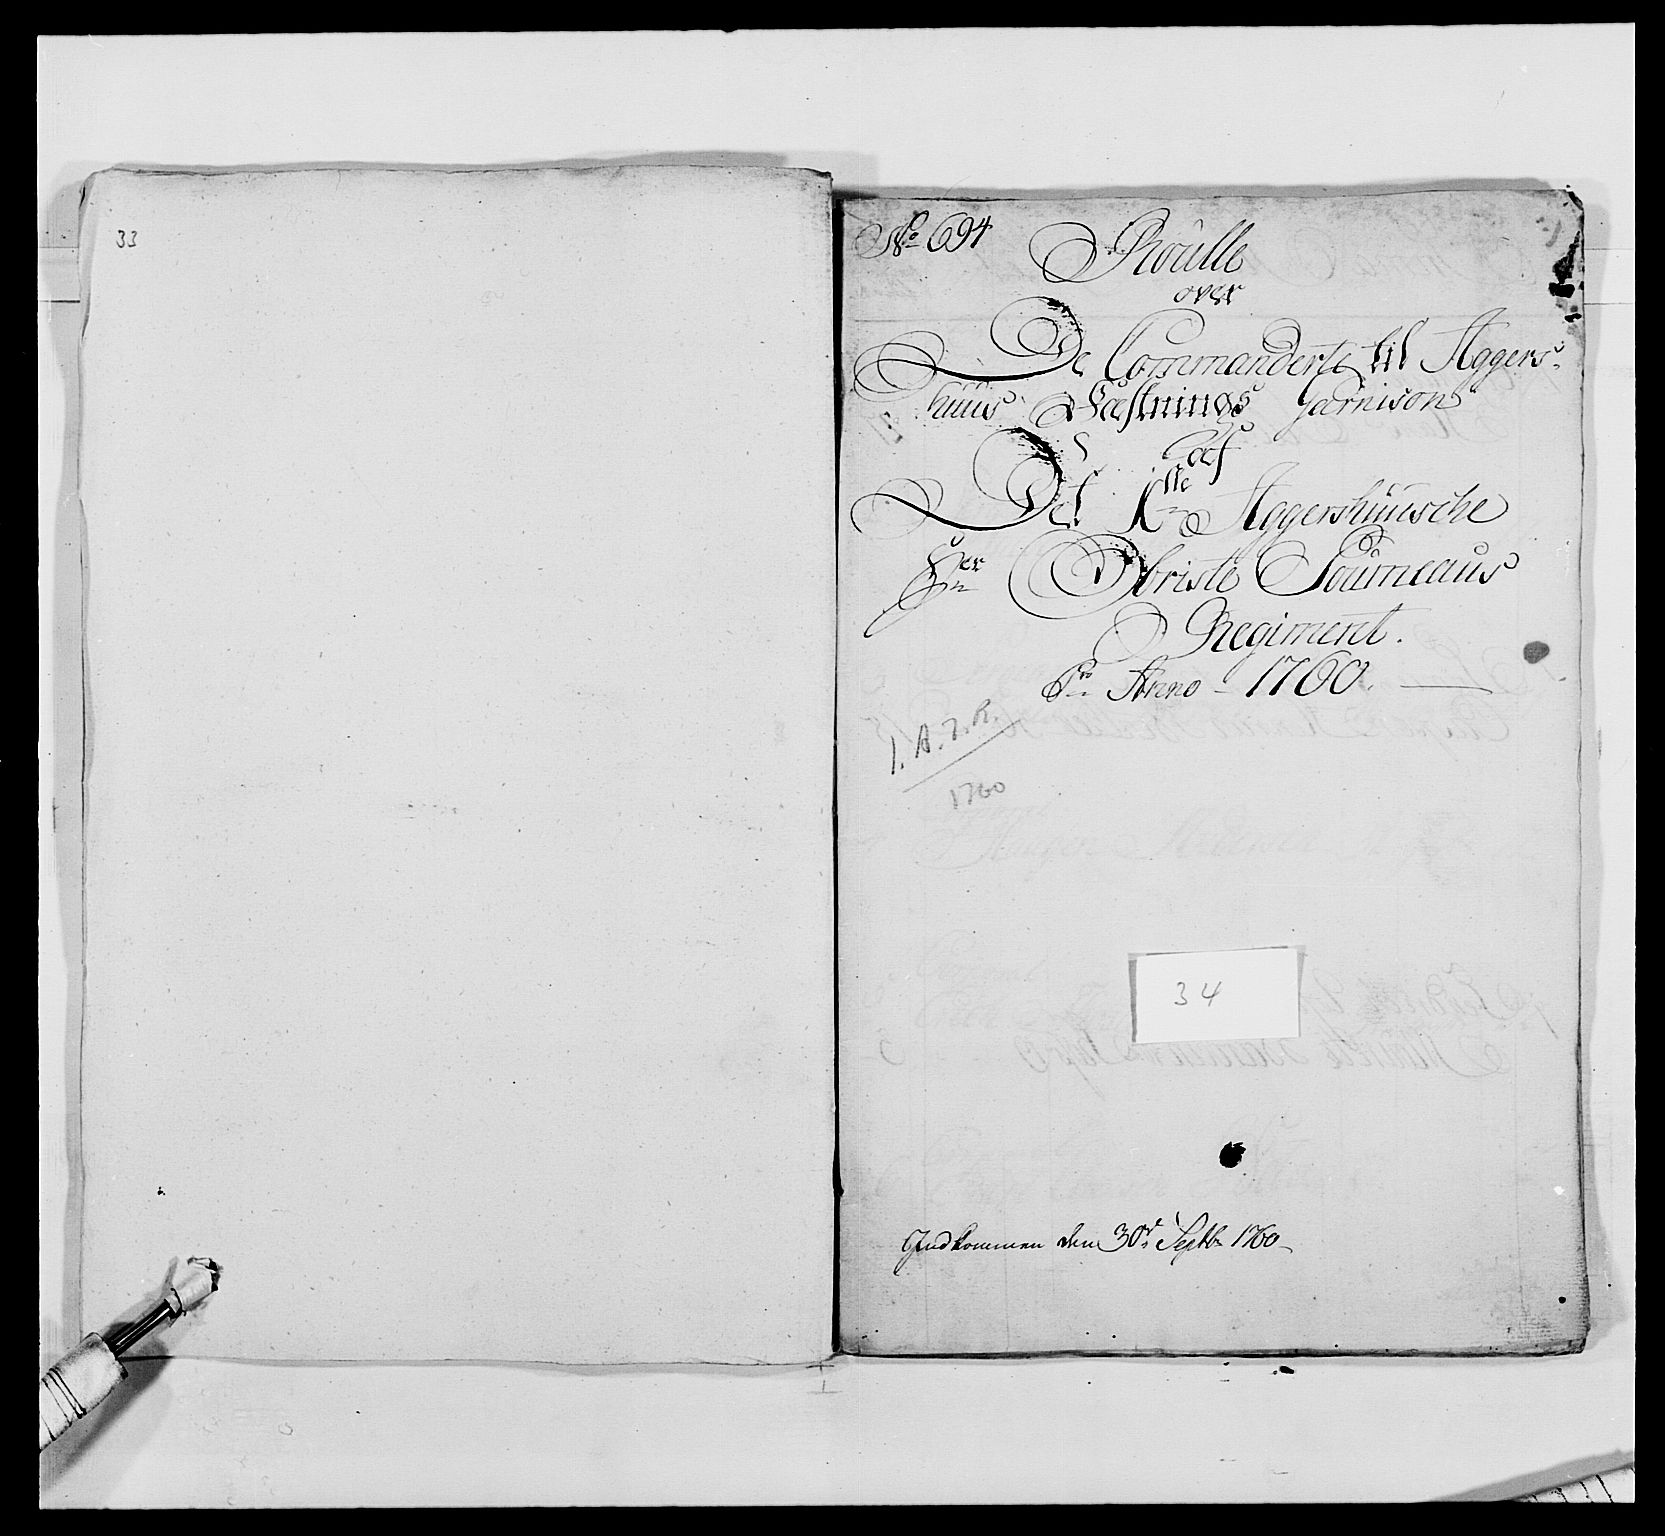 33
No 694
Roulle
over
De Commanderte til Aggers-
huus Fæstnings Garnison
af
Det 1ste Aggershuusche
Hr Obriste Fourneaus
Regiment.
Pro Anno - 1760.
1. A. I. R.
1760
34
Indkommen den 30d Septb 1760